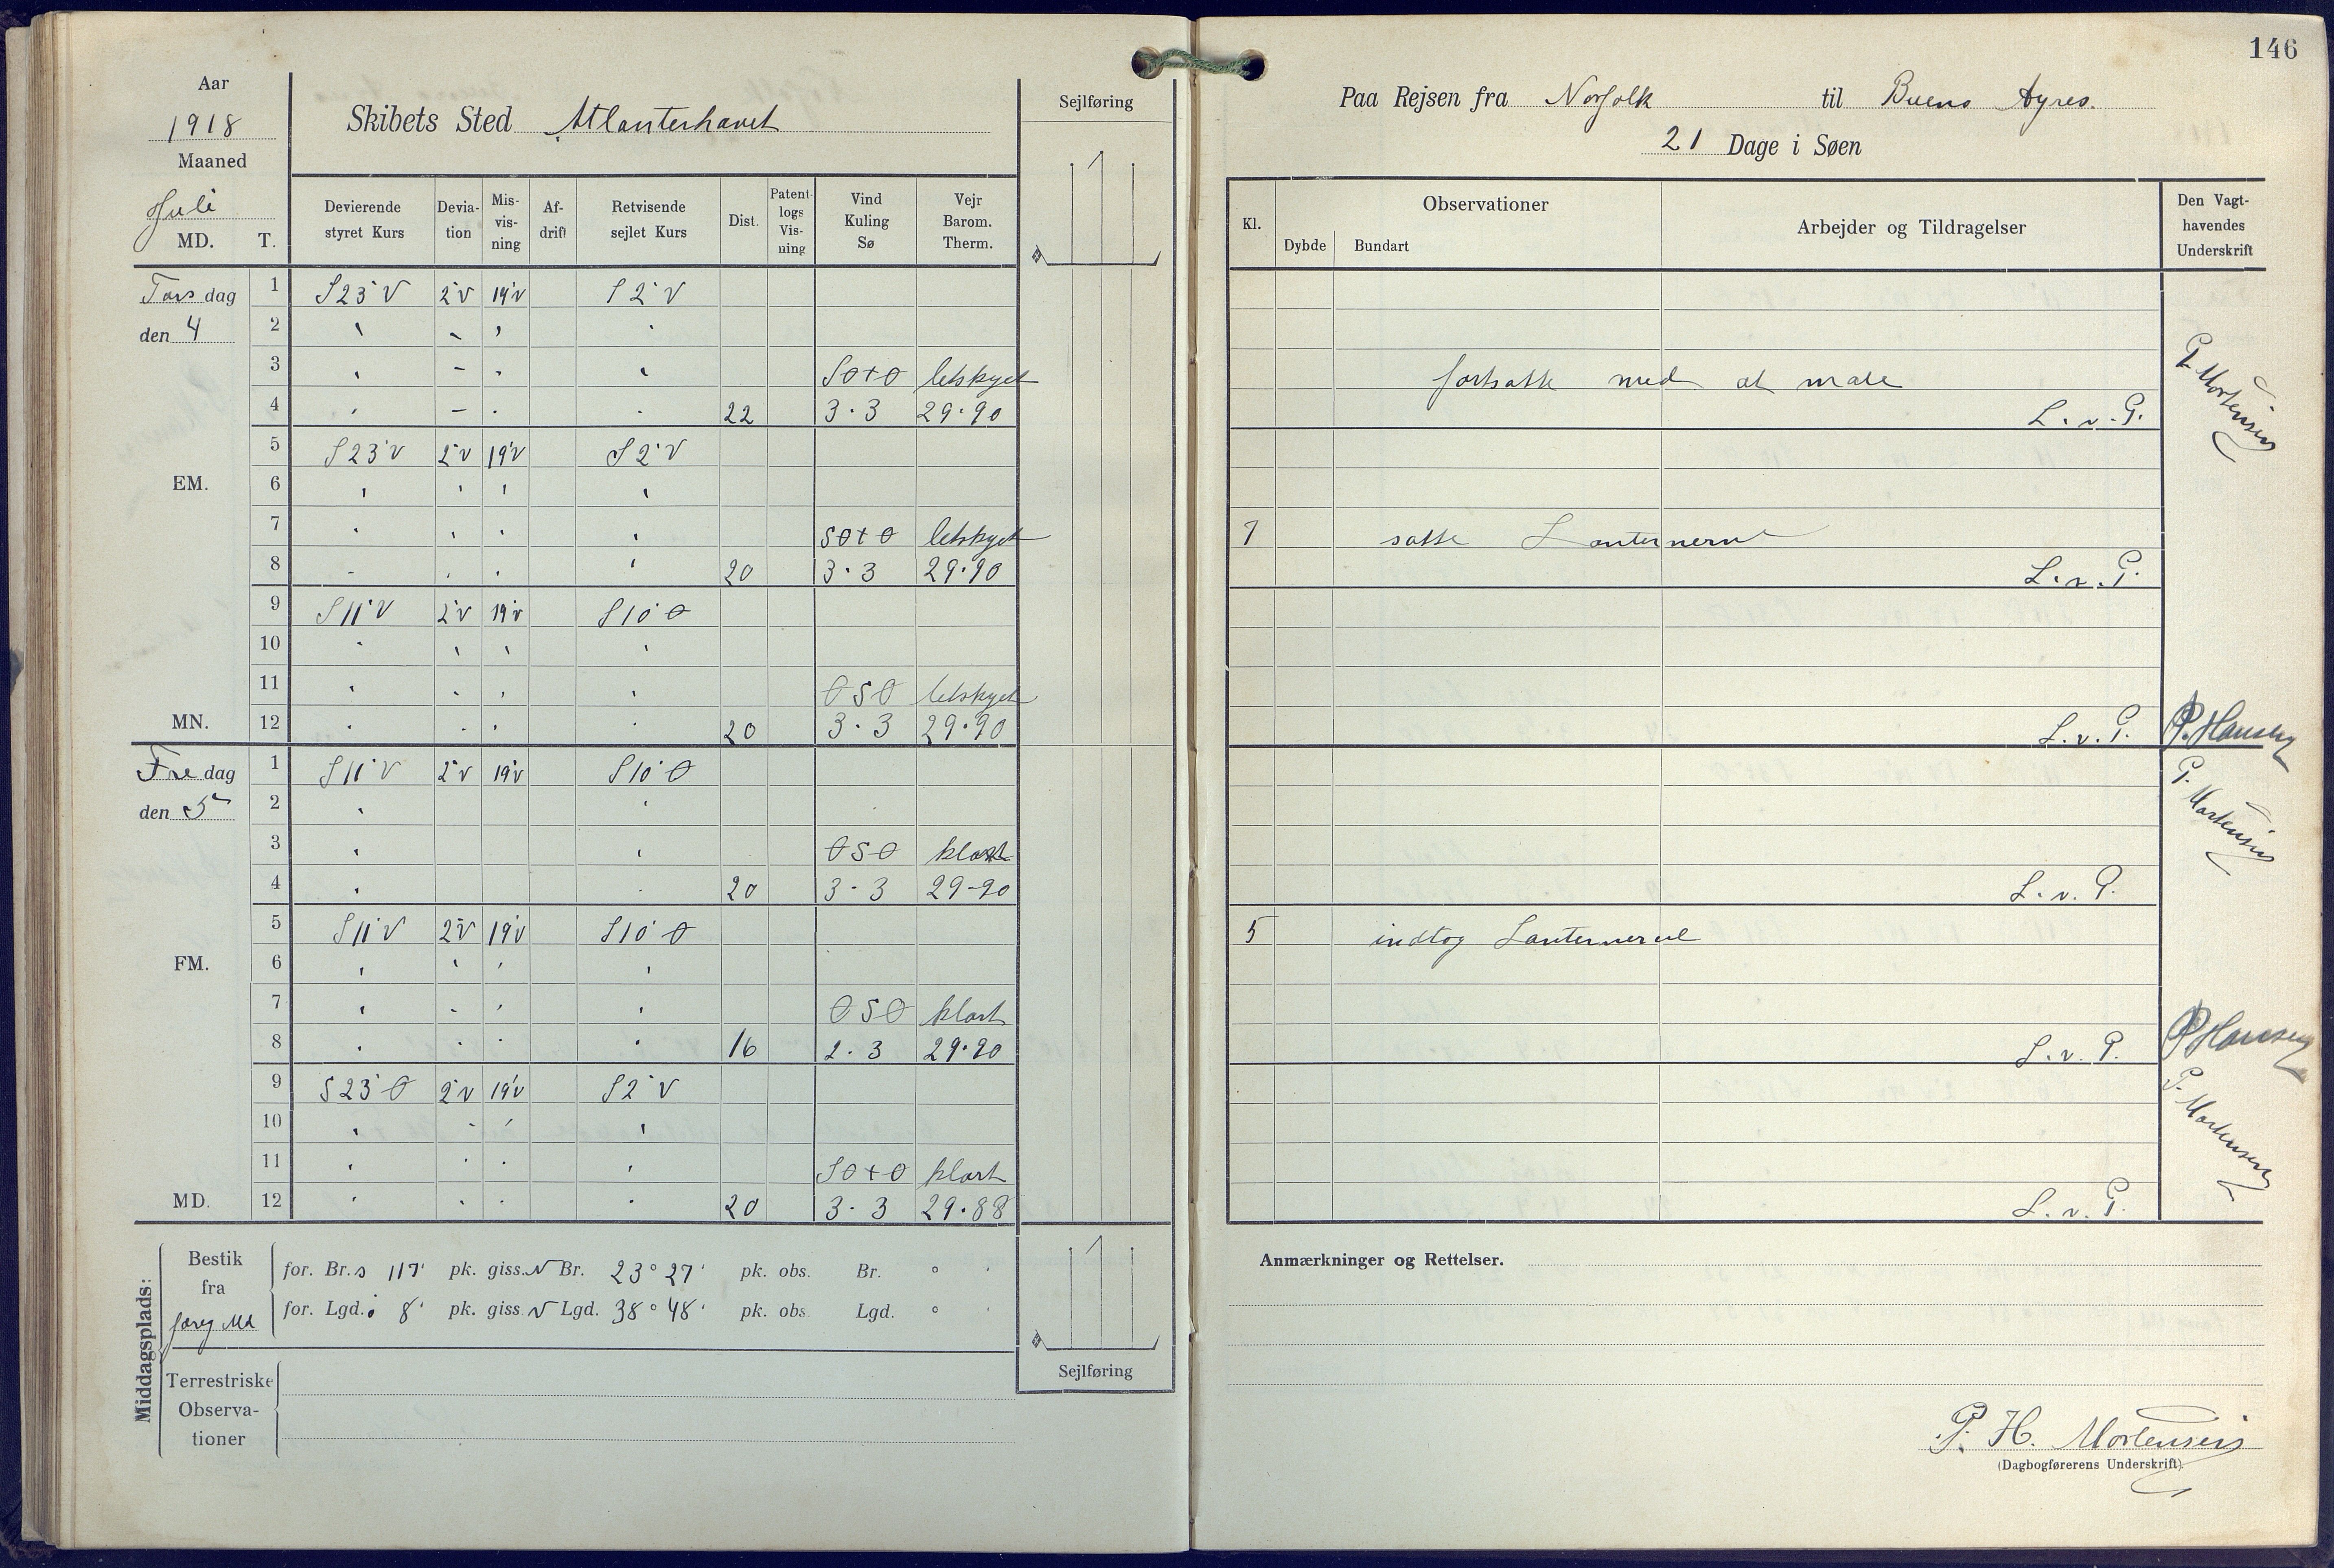 146
Aar
1918
Maaned
Juli
MD. T.
Skibets Sted Atlanterhavet
Sejlføring
Devierende styret Kurs
Deviation
Misvisning
Afdrift
Retvisende sejlet Kurs
Dist.
Patentlogs Visning
Vind Kuling Sø
Vejr Barom. Therm.
Tors dag 1 S 23° V 2° V 19° V S 2° V
den 4 2 " " " "
3 " " " " SOtO letskyet
4 " " " " 22 3 · 3 29·90
5 S 23° V 2° V 19° V S 2° V
EM. 6 " " " "
7 " " " " SOtO letskyet
8 " " " " 20 3 · 3 29·90
9 S 11° V 2° V 19° V S 10° O
10 " " " "
11 " " " " OSO letskyet
MN. 12 " " " " 20 3 · 3 29·90
Fre dag 1 S 11° V 2° V 19° V S 10° O
den 5 2 " "
3 " " OSO klart
4 " " 20 3 - 3 29-90
5 S 11° V 2° V 19° V S 10° O
FM. 6 " " " "
7 " " " " OSO klart
8 " " " " 16 2 · 3 29·90
9 S 23° O 2° V 19° V S 2° V
10 " " " "
11 " " " " SOtO klart
MD. 12 " " " " 20 3 · 3 29·88
Middagsplads:
Bestik fra forrg Md
for. Br. s 117' pk. giss. N Br. 23° 27' pk. obs. Br. ° '
for. Lgd. 8' pk. giss. V Lgd. 38° 48' pk. obs. Lgd. ° '
Sejlføring
Terrestriske Observationer
Paa Rejsen fra Norfolk til Buens Ayres.
21 Dage i Søen
Kl.
Observationer
Dybde Bundart
Arbejder og Tildragelser
Den Vagthavendes Underskrift
fortsatte med at male
L. v. P. P Mortensen
7 satte Lanternerne
L. v. P.
L. v. P. P. Hansen
L. v. P. P. Mortensen
5 indtog Lanternerne
L. v. P. P Hansen
L. v. P. P. Mortensen
Anmærkninger og Rettelser.
P. H. Mortensen
(Dagbogførerens Underskrift)